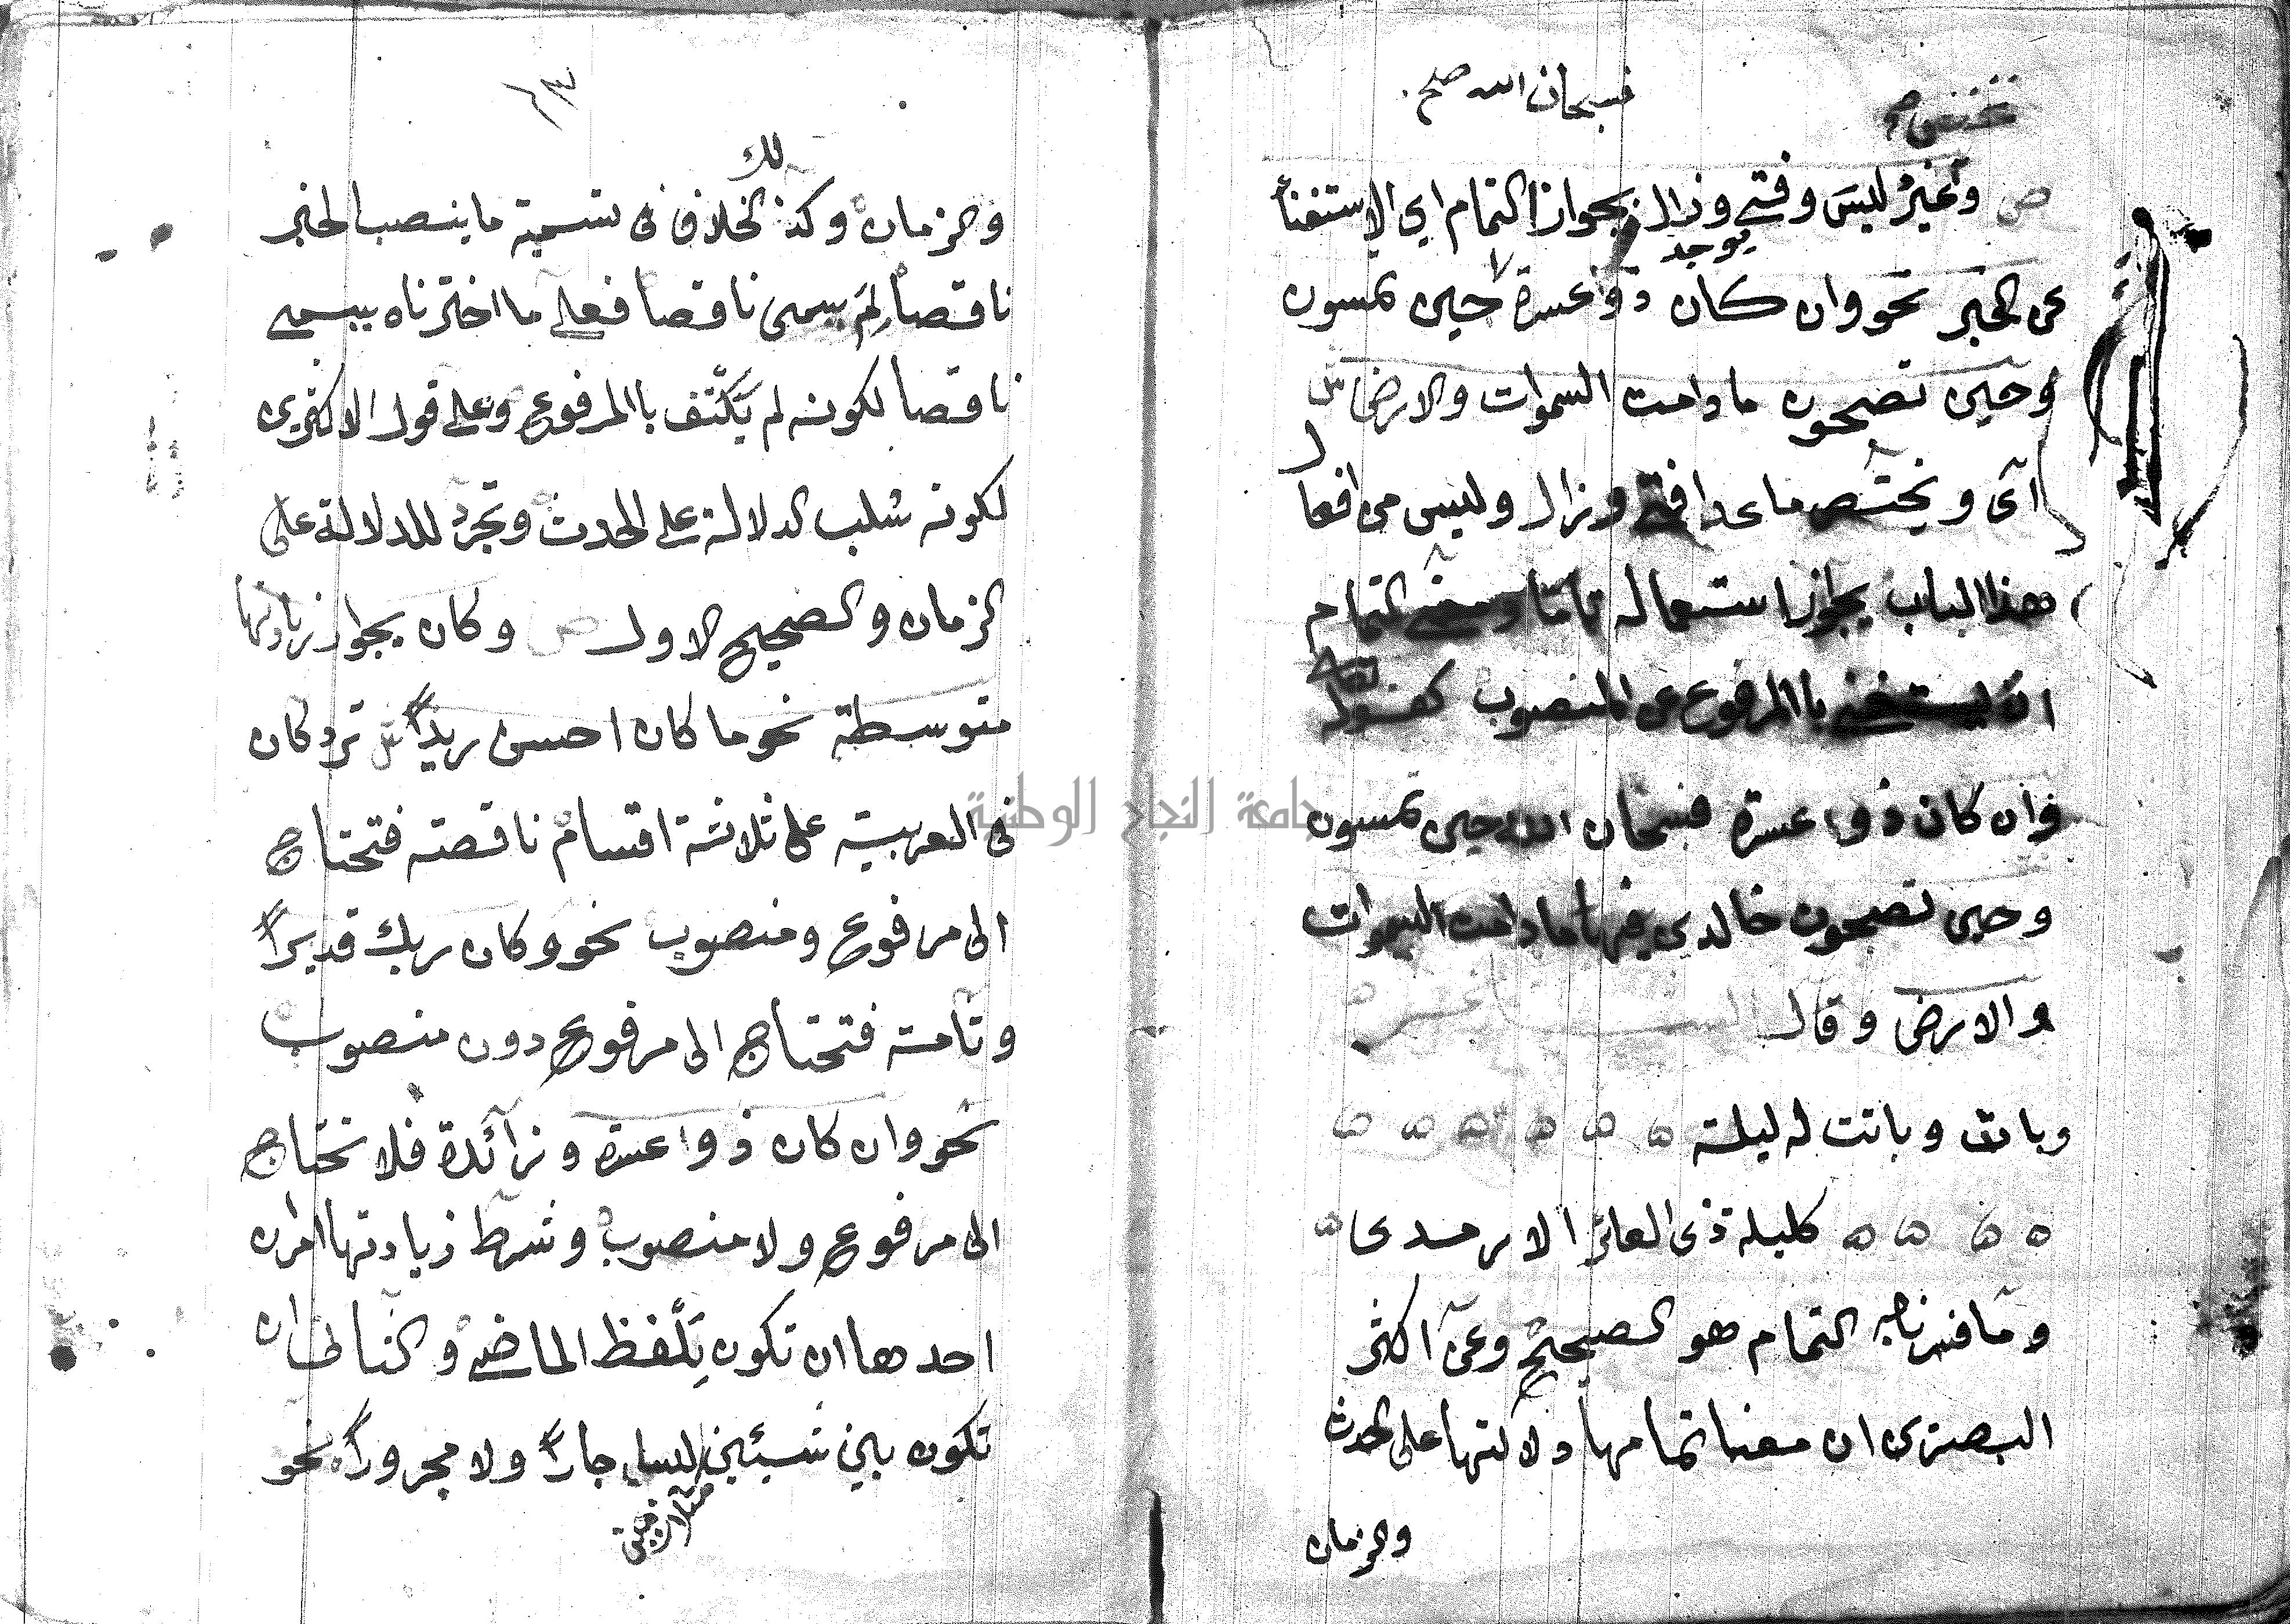 فسبحان الله صلح
ص وغير ليس وفتي وزال بجواز التمام اي الاستغنا
يوجد
عن الخبر نحو وان كان ذوا عسرة حين تمسون
وحين تصبحون ما دامت السموات والارض ش
اى ويختص ما عدا فتي وزال وليس من افعا ل
هذا الباب بجواز استعماله تاما ومعنى التمام
ان يستغني باالمرفوع عن المنصوب كقوله تعالى
وان كان ذوا عسرة فسبحان الله حين تمسون
وحين تصبحون خالدين فيها ما دامت السموات
والارض وقال
وبات وباتت له ليلة ه ه ه ه ه ه
ه ه ه ه كليلة ذى العائر الا رمدى
وما فسرنا به التمام هو الصحيح وعن اكثر
البصرين ان معنا تمامها دلالتها على الحدث
والزمان
٦٣
والزمان وكذلك الخلاف فى تسمية ما ينصب الخبر
ناقصا لِمَ يسمى ناقصا فعلى ما اخترناه يسمى
ناقصا لكونه لم يَكْتَف باالمرفوع وعلى قول الاكثرين
لكونه سلب الدلالة على الحدث وتجرد للدلالة على
الزمان والصحيح الاول ص وكان بجواز زيادتها
متوسطة نحو ما كان احسن زيداً ش ترد كان
فى العربية على ثلاثة اقسام ناقصة فتحتاج
الى مرفوع ومنصوب نحو وكان ربك قديراً
وتامة فتحتاج الى مرفوع دون منصوب
نحو وان كان ذوا عسرة وزآئدة فلا تحتاج
الى مرفوع ولا منصوب وشرط زيادتها امران
احدها ان تكون بِلَفظ الماضى والثانى ان
تكون بين شيئين ليسا جاراً ولا مجروراً نحو
متلازمين
جامعة النجاح الوطنية